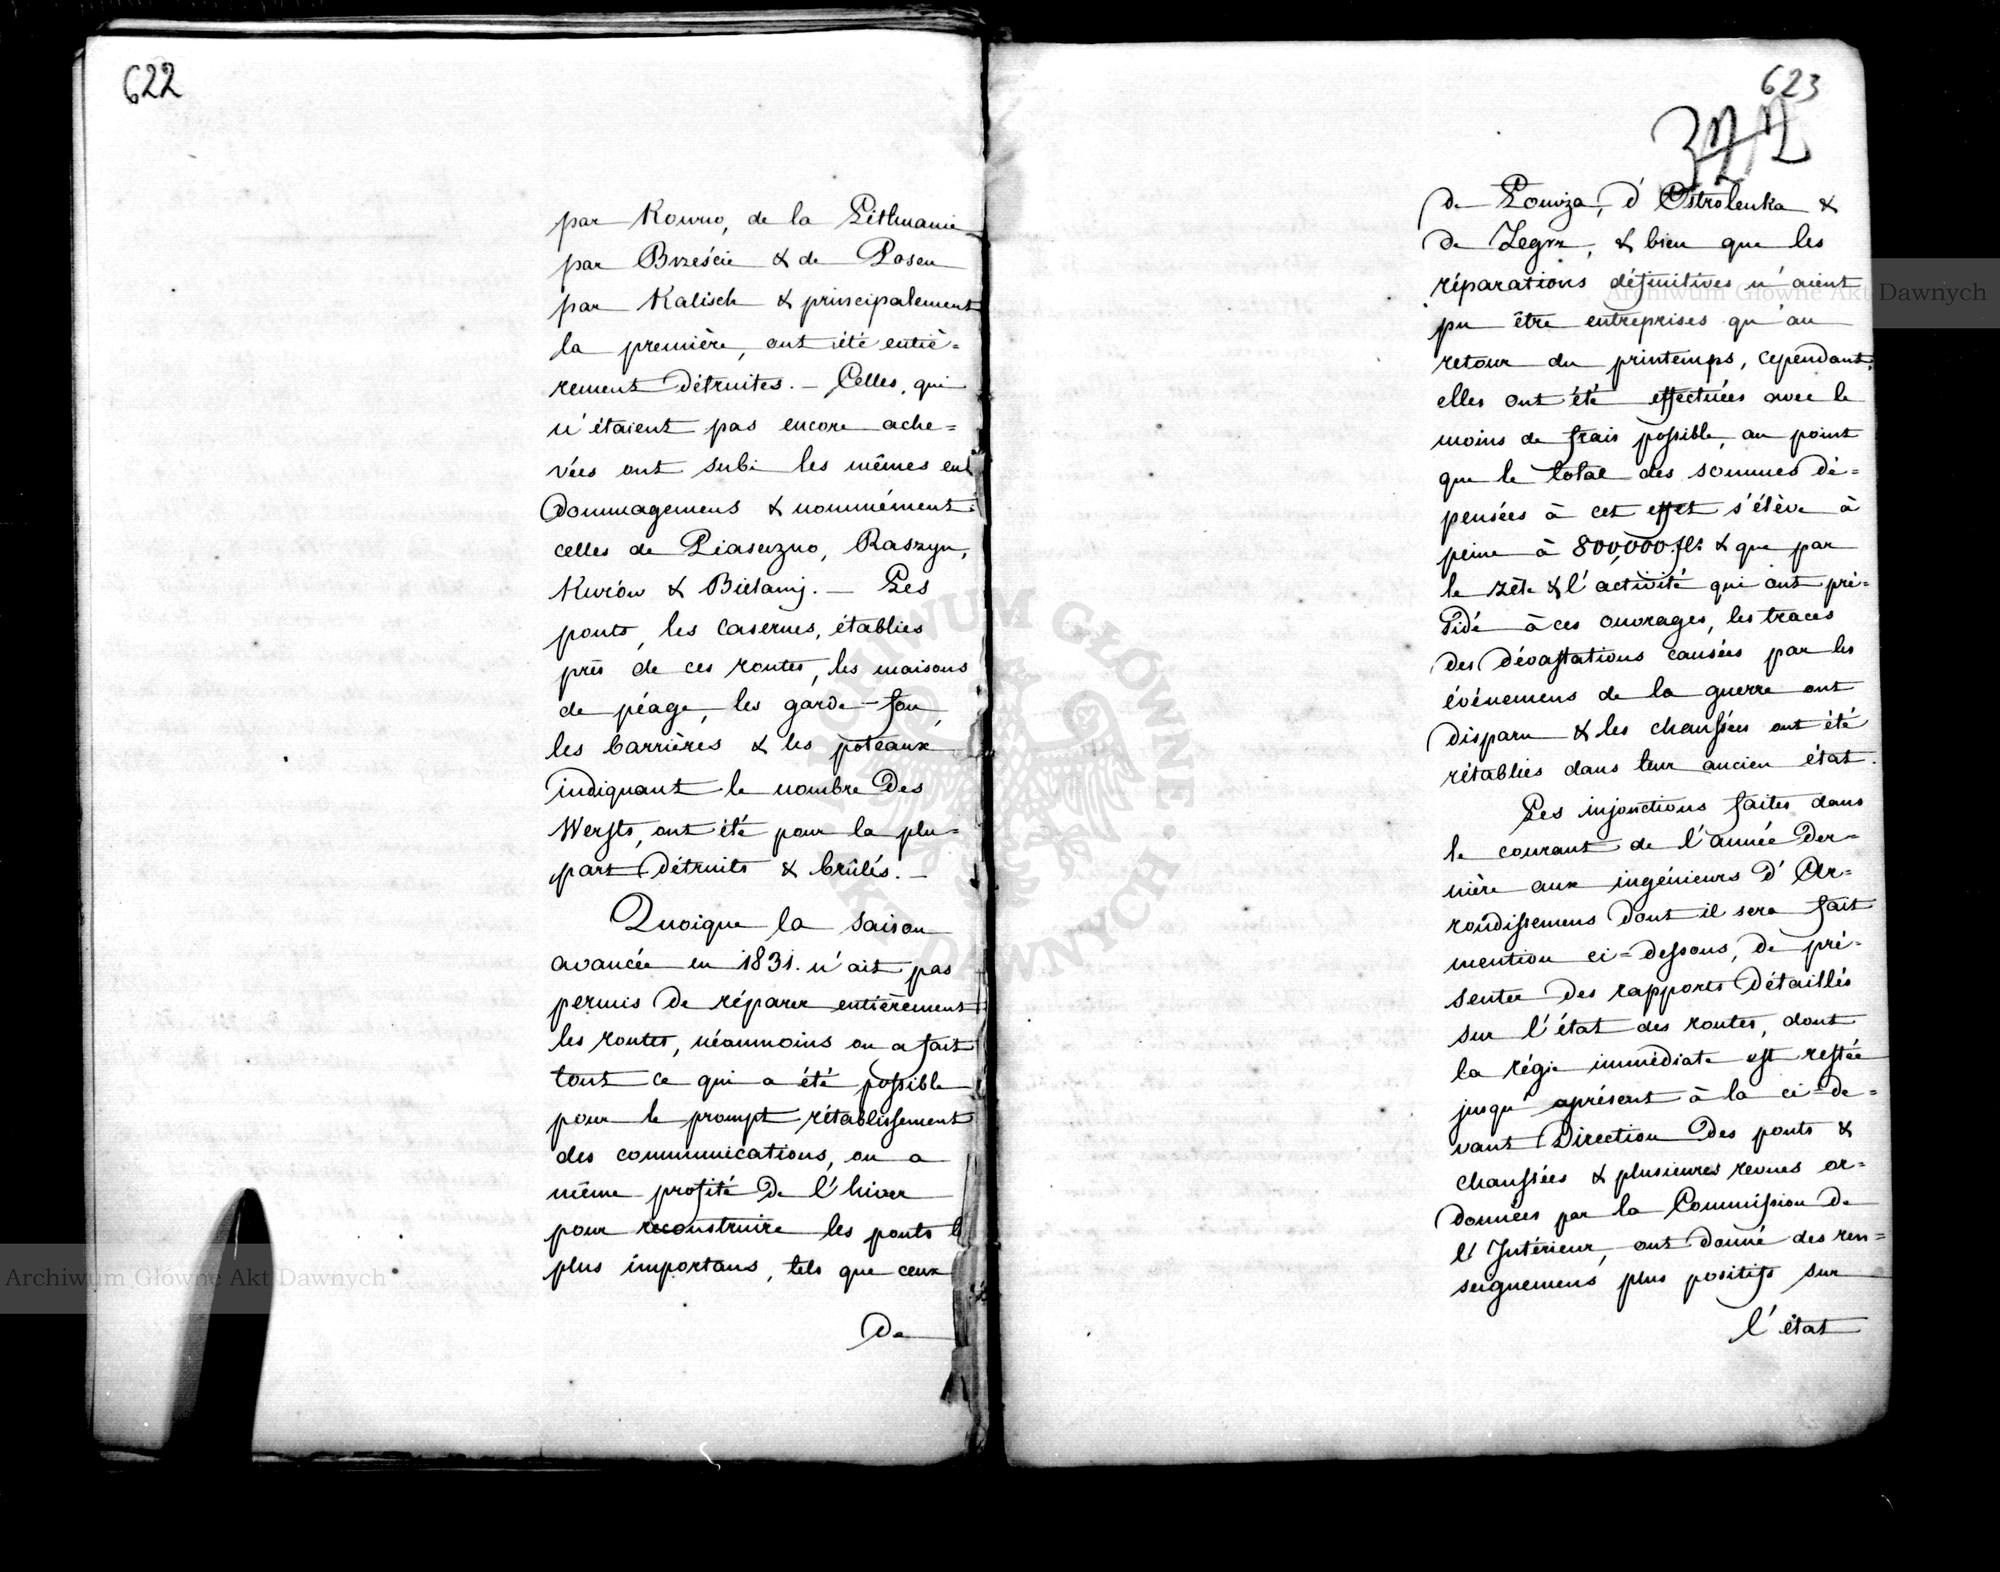 622
par Kowno, de la Lithuanie
par Brzeście & de Posen
par Kalisch & principalement
la première, ont été entiè=
rement détruites. – Celles, qui
n'étaient pas encore ache=
vées ont subi les mêmes en
dommagemens & nommément
celles de Piaseczno, Raszyn,
Kurów & Bielany. – Les
ponts, les casernes, établies
près de ces routes, les maisons
de péage, les garde-fou,
les barrières & les poteaux
indiquant le nombre des
Wersts, ont été pour la plu=
part détruits & brûlés. –
Quoique la saison
avancée en 1831. n'ait pas
permis de réparer entièrement
les routes, néanmoins on a fait
tout ce qui a été possible
pour le prompt rétablissement
des communications, on a
même profité de l'hiver
pour reconstruire les ponts
plus importans, tels que ceux
de
623
322
de Łomża, d'Ostrolenka &
de Zegrz, & bien que les
réparations définitives n'aient
pu être entreprises qu'au
retour du printems, cependant
elles ont été effectuées avec le
moins de frais possible, au point
que le total des sommes dé=
pensées à cet effet s'élève à
peine à 800,000 fl: & que par
le zèle & l'activité qui ont pré=
sidé à ces ouvrages, les traces
des dévastations causées par les
événemens de la guerre ont
disparu & les chaussées ont été
rétablies dans leur ancien état.
Les injonctions faites dans
le courant de l'année der=
nière aux ingénieurs d'Ar=
rondissemens dont il sera fait
mention ci=dessous, de pré=
senter des rapports détaillés
sur l'état des routes, dont
la régie immédiate est restée
jusqu'aprésent à la ci=de=
vant Direction des ponts &
chaussées & plusieures revues or=
données par la Commission de
l'Intérieur, ont donné des ren=
seignemens plus positifs sur
l'état
Archiwum Główne Akt Dawnych
Archiwum Główne Akt Dawnych
ARCHIWUM GŁÓWNE AKT DAWNYCH